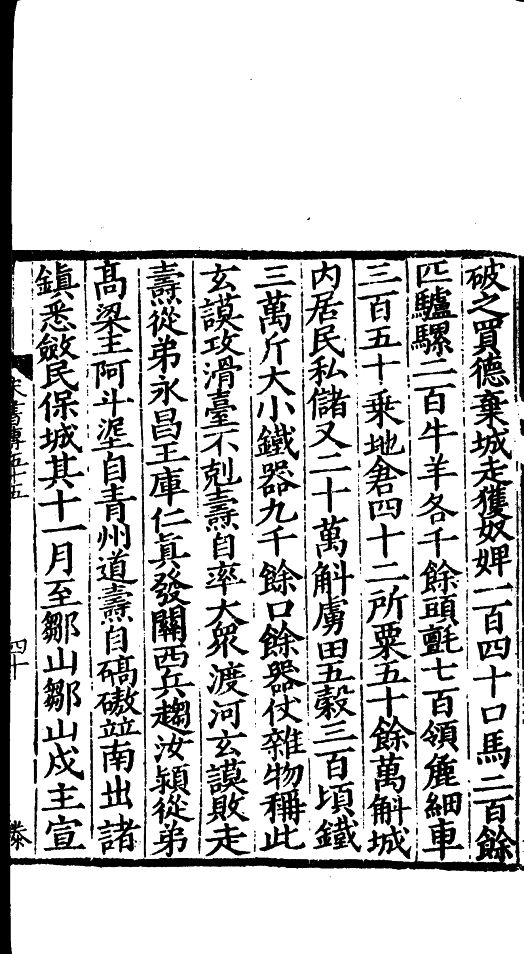 破之買德棄城走獲奴婢一百四十口馬二百餘
匹驢騾二百牛羊各千餘頭氈七百領麄細車
三百五十乘地倉四十二所粟五十餘萬斛城
內居民私儲又二十萬斛虜田五穀三百頃鐵
三萬斤大小鐵器九千餘口餘器仗雜物稱此
玄謨攻滑臺不剋燾自率大衆渡河玄謨敗走
燾從弟永昌王庫仁真發關西兵趨汝潁從弟
高梁王阿斗埿自青州道燾自碻磝並南出諸
鎮悉斂民保城其十一月至鄒山鄒山戍主宣
宋書傳五十五
四十